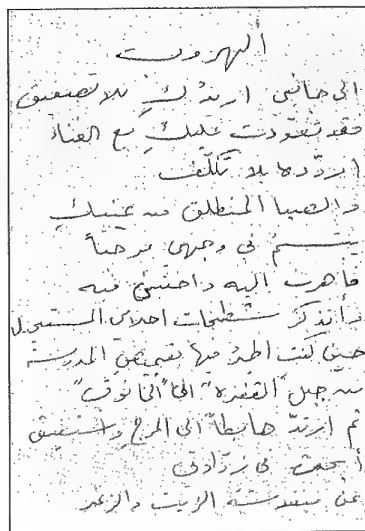 ألهروب
الى جانبي اريدكِ بلا تصفيق
فقد تعودت عليكِ مع الغناء
اردّدها بلا تكلّف
والصبا المنطلق من عينيكِ
يبتسم في وجهي مرحباً
فاهرب اليه واختبئ فيه
وأتذكر شطحات احلامي
حين كنت اطير فيها بقميص المدرسة
من جبل "القفزه" الى "الخانوق"
ثم ارتدّ هابطاً الى المرج واستفيق
أبحث في زوّادتي
عن سندويشة الزيت والزعتر